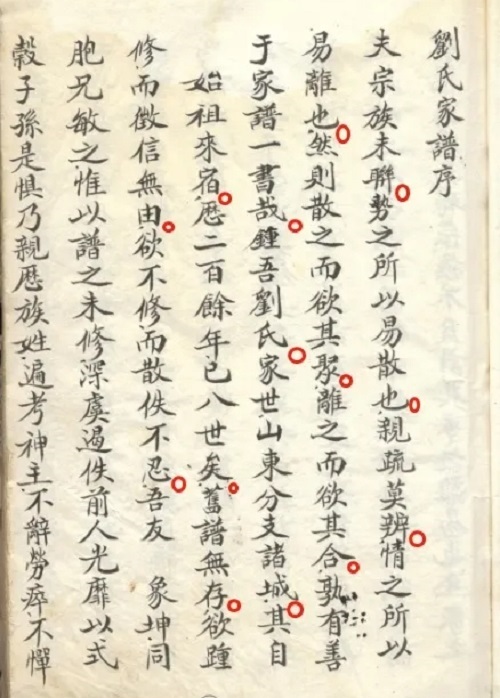 劉氏家譜序
夫宗族未聯勢之所以易散也親疏莫辨情之所以
易離也然則散之而欲其聚離之而欲其合孰有善
于家譜一書哉鍾吾劉氏家世山東分支諸城其自
始祖來宿歷二百餘年已八世矣舊譜無存欲踵
修而徵信無由欲不修而散佚不忍吾友 象坤同
胞兄敏之惟以譜之未修深虞過佚前人光靡以式
穀子孫是懼乃親歷族姓遍考神主不辭勞瘁不憚